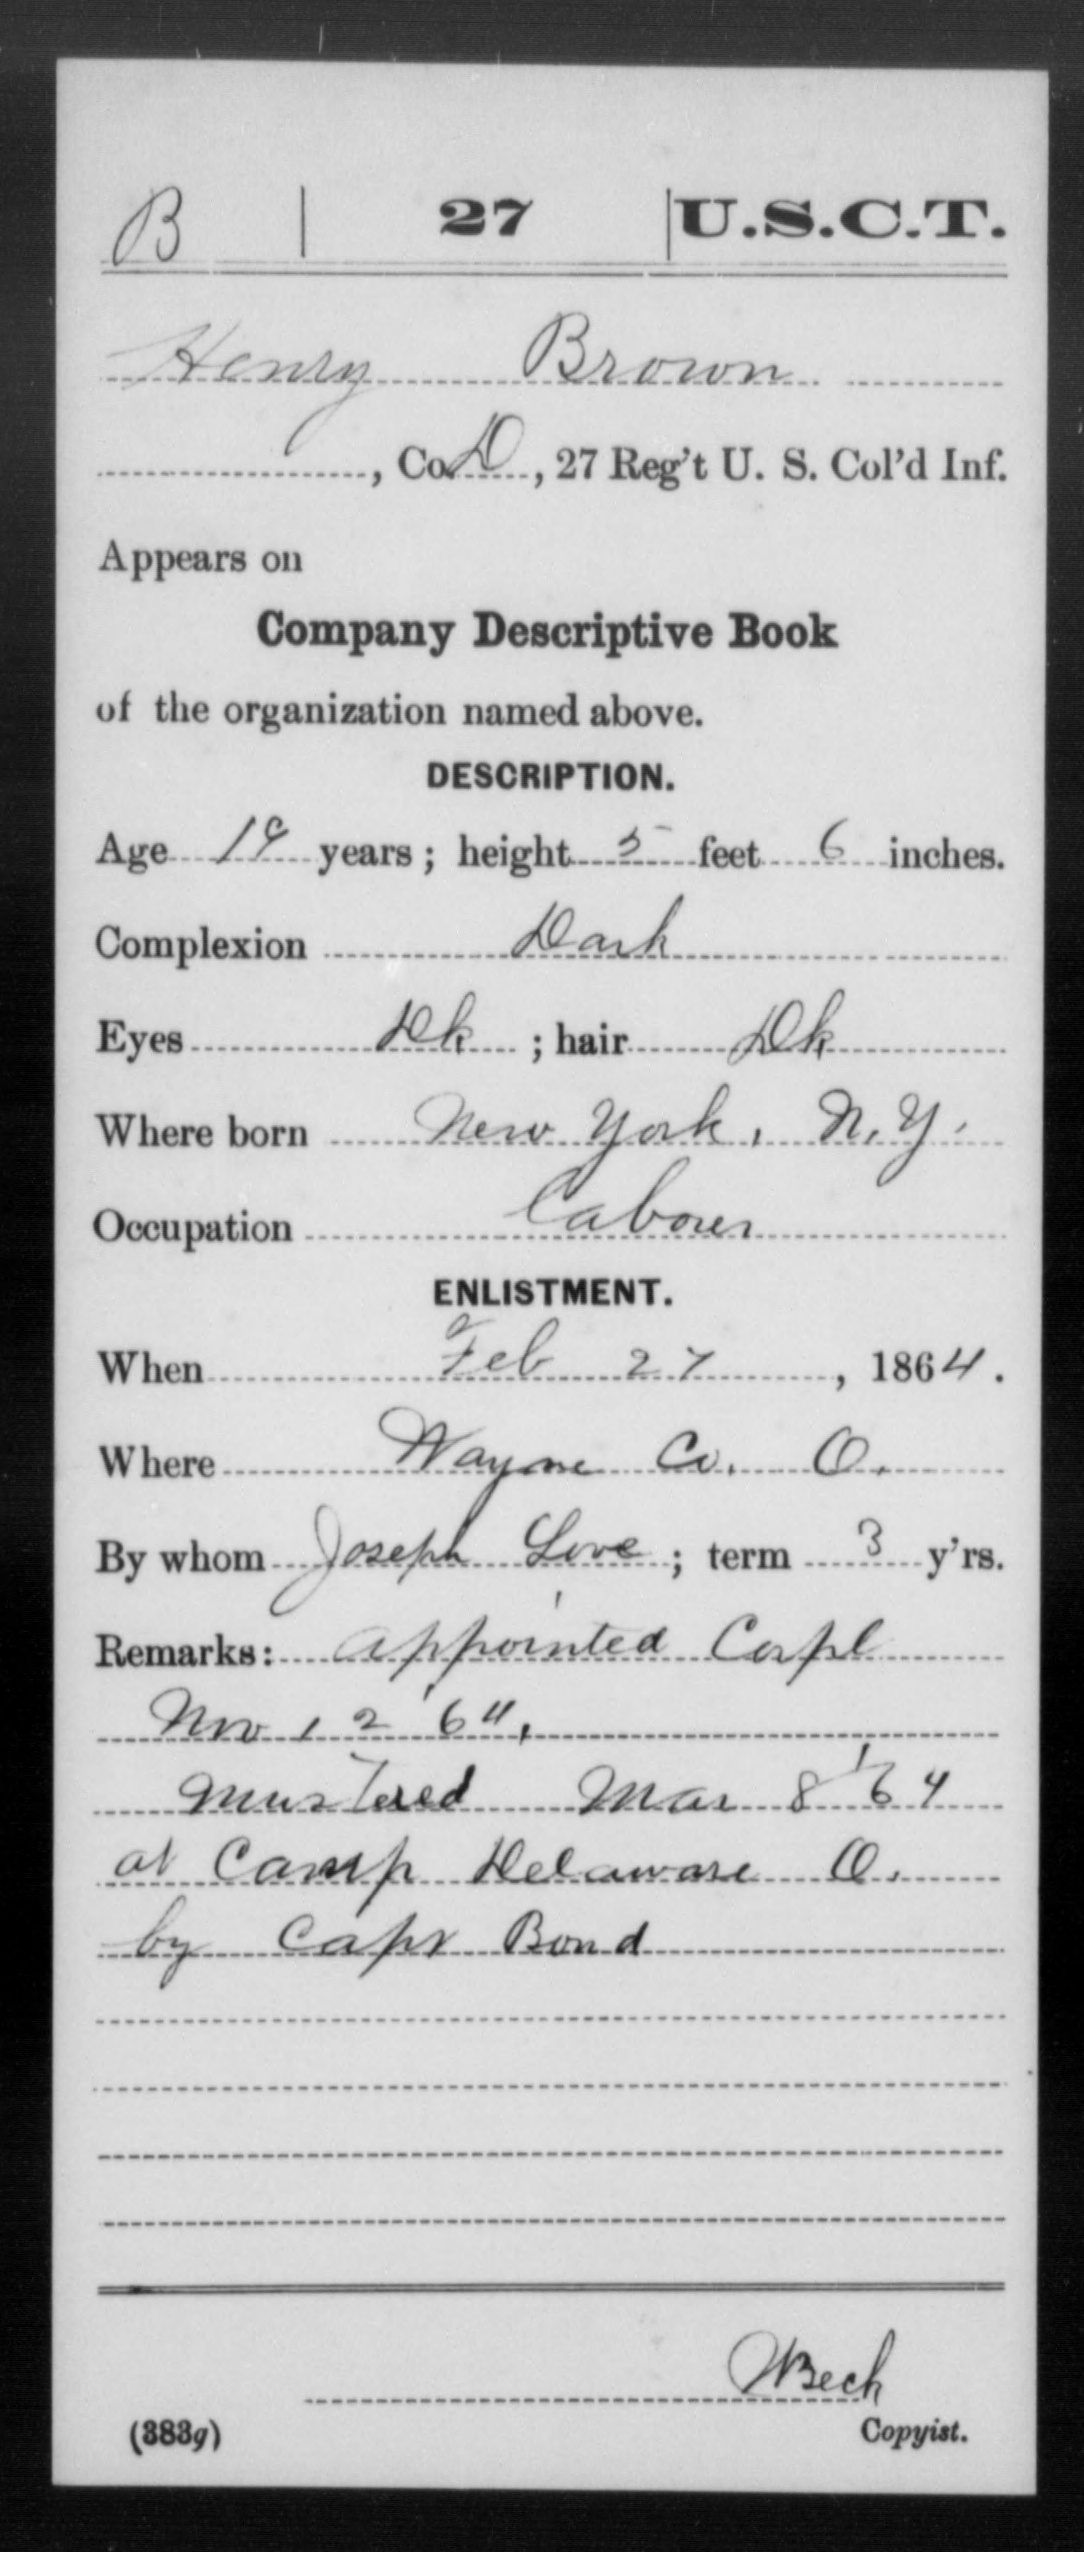 B | 27 | U.S.C.T.
Henry Brown
, Co. D, 27 Reg't U. S. Col'd Inf.
Appears on
Company Descriptive Book
of the organization named above.
DESCRIPTION.
Age 19 years; height 5 feet 6 inches.
Complexion Dark
Eyes Dk ; hair Dk
Where born New York, N.Y.
Occupation Laborer
ENLISTMENT.
When Feb 27, 1864.
Where Wayne Co. O.
By whom Joseph Love; term 3 y'rs.
Remarks: appointed Corpl
Nov 1 2 '64,
mustered Mar 8 '64
at Camp Delaware O.
by Capt Bond
Beck
(383g) Copyist.